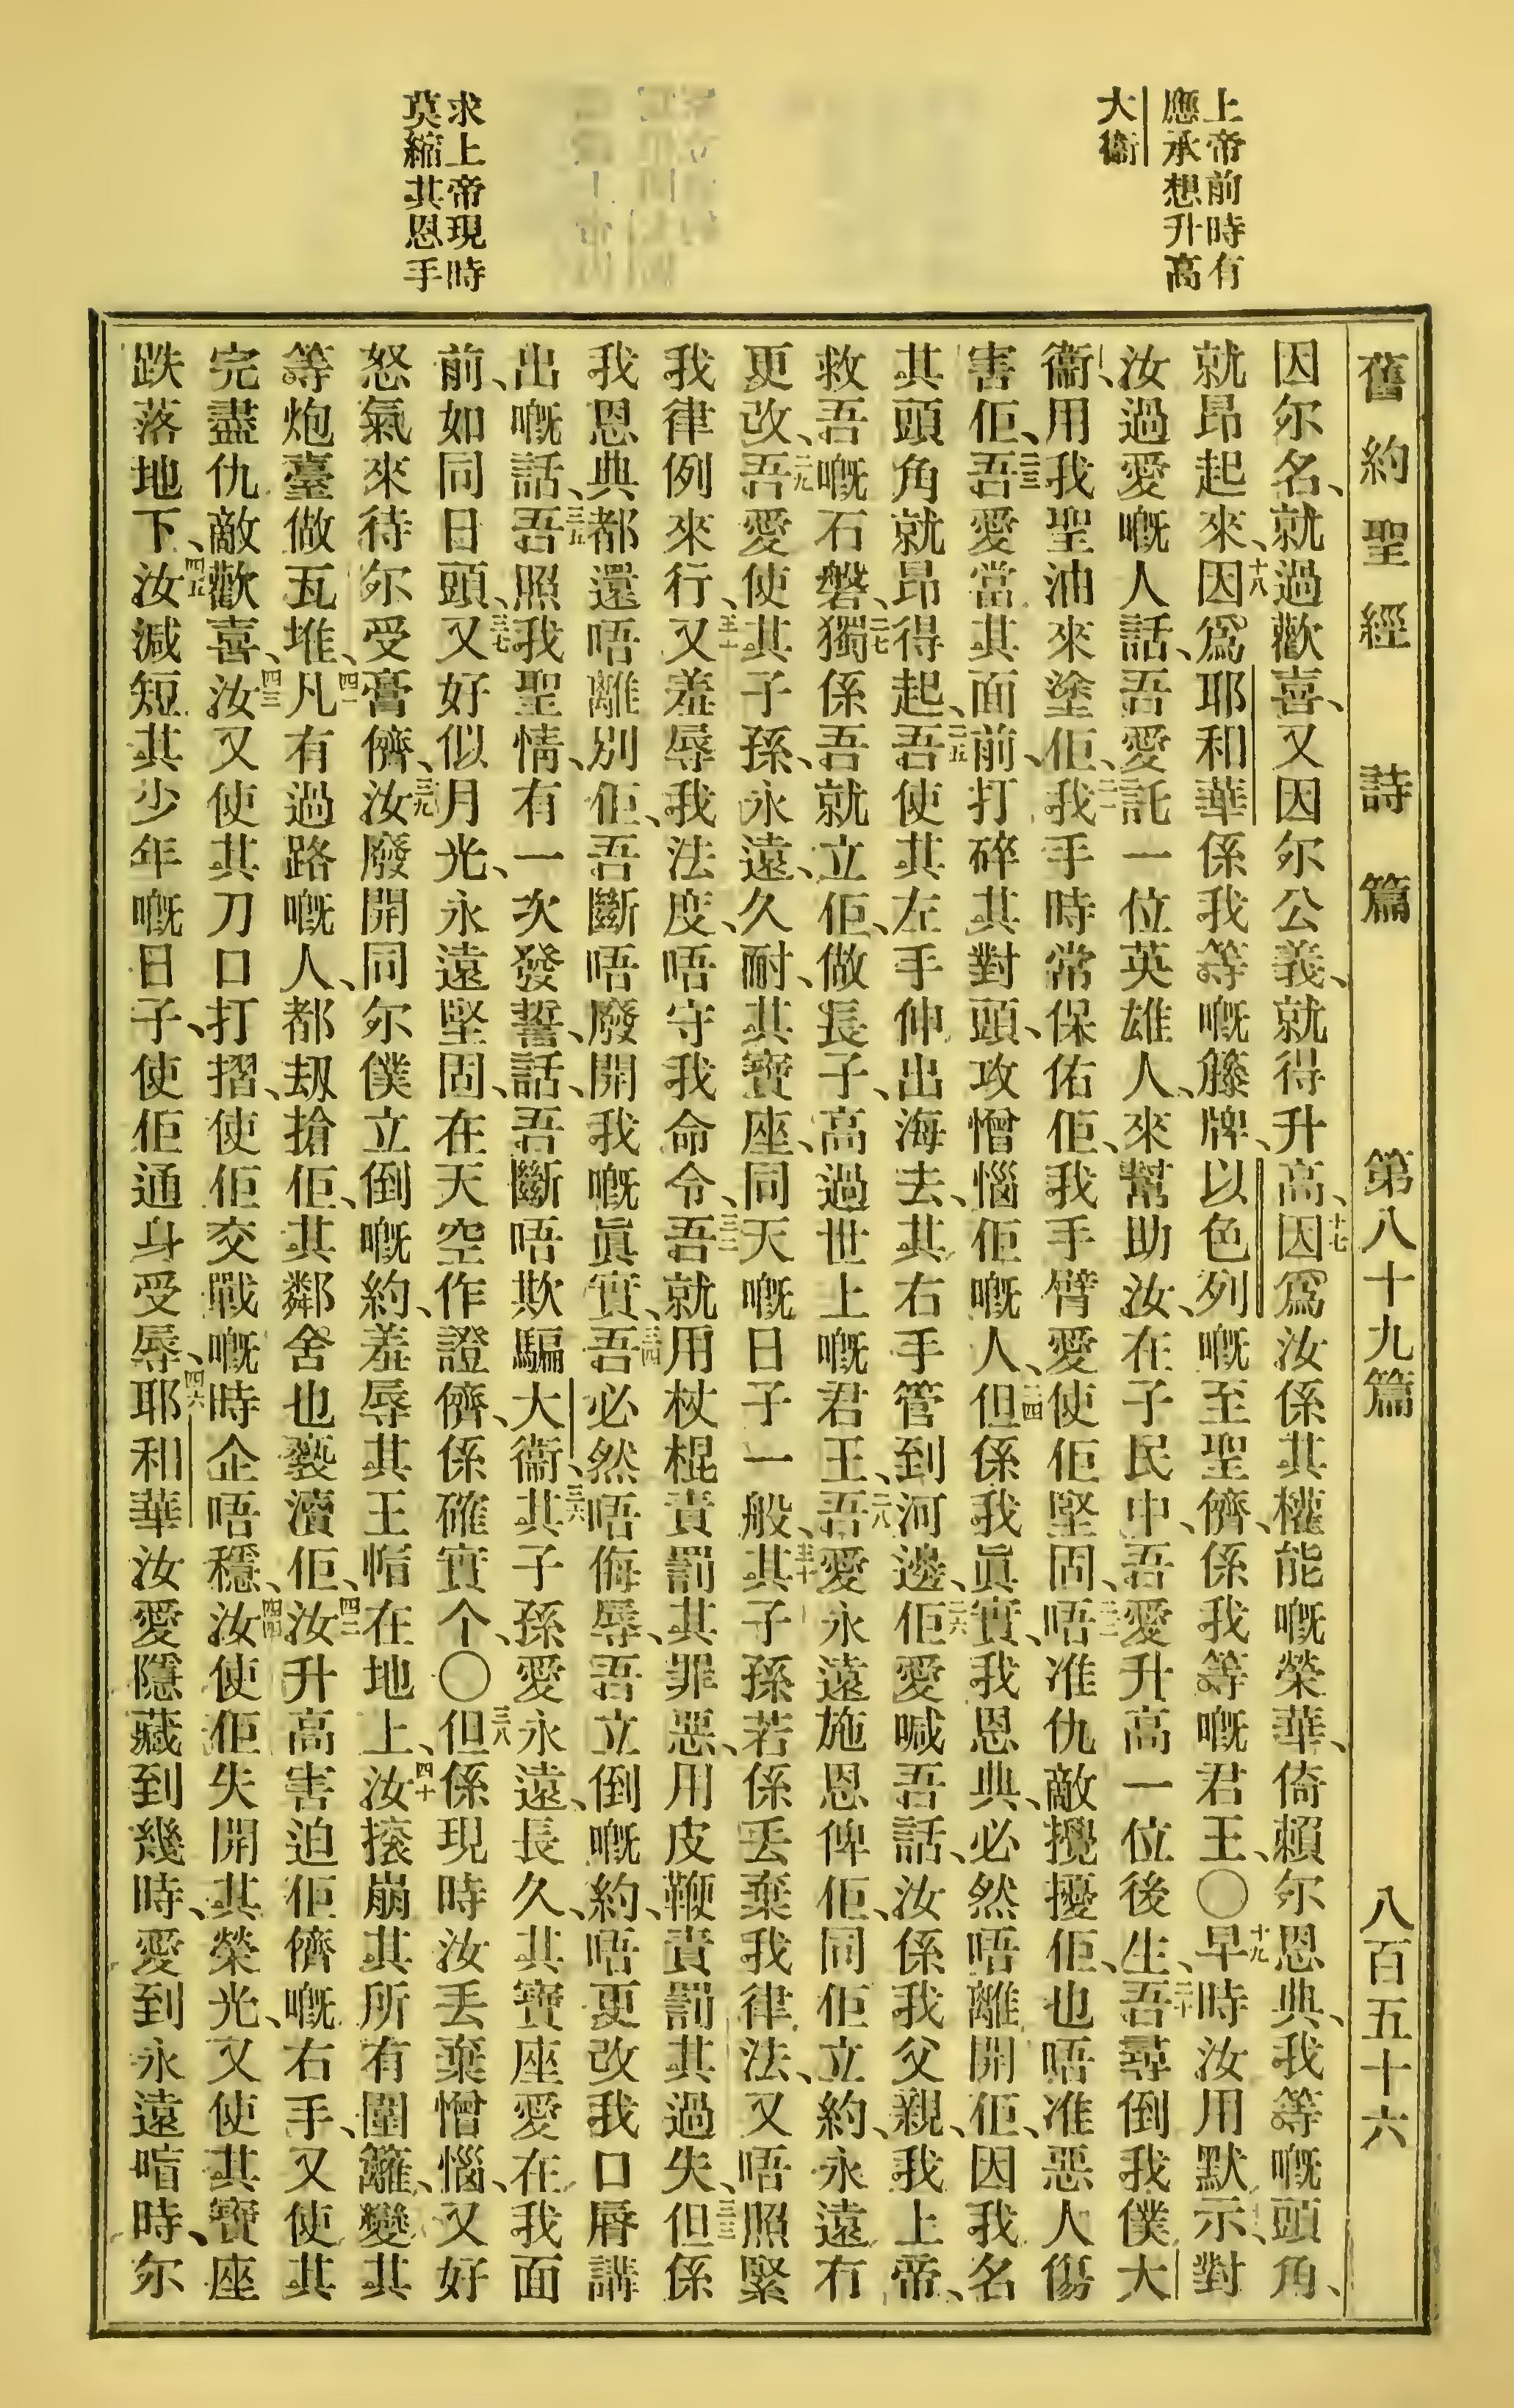 上帝前時有
應承想升高
大衞
求上帝現時
莫縮其恩手
舊約聖經 詩篇 第八十九篇 八百五十六
因尔名、就過歡喜、又因尔公義、就得升高、十七因爲汝係其權能嘅榮華、倚賴尔恩典、我等嘅頭角、
就昂起來、十八因爲耶和華係我等嘅籐牌、以色列嘅至聖儕、係我等嘅君王、〇十九早時汝用默示、對
汝過愛嘅人話、吾愛託一位英雄人、來幫助汝、在子民中、吾愛升高一位後生、二十吾尋倒我僕大
衞、用我聖油來塗佢、二一我手時常保佑佢、我手臂愛使佢堅固、二二唔准仇敵攪擾佢、也唔准惡人傷
害佢、二三吾愛當其面前、打碎其對頭、攻憎惱佢嘅人、二四但係我眞實、我恩典、必然唔離開佢、因我名
其頭角就昂得起、二五吾使其左手伸出海去、其右手管到河邊、二六佢愛喊吾話、汝係我父親、我上帝、
救吾嘅石磐、二七獨係吾就立佢、做長子、高過世上嘅君王、二八吾愛永遠施恩俾佢、同佢立約、永遠冇
更改、二九吾愛使其子孫、永遠、久耐、其寶座、同天嘅日子一般、三十其子孫若係丟棄我律法、又唔照緊
我律例來行、三一又羞辱我法度、唔守我命令、三二吾就用杖棍責罰其罪惡、用皮鞭責罰其過失、三三但係
我恩典都還唔離別佢、吾斷唔廢開我嘅眞實、三四吾必然唔侮辱、吾立倒嘅約、唔更改我口脣講
出嘅話、三五吾照我聖情、有一次發誓、話、吾斷唔欺騙大衞、三六其子孫愛永遠、長久、其寶座愛在我面
前、如同日頭、三七又好似月光、永遠堅固、在天空作證儕、係確實个、〇三八但係現時汝丟棄憎惱、又好
怒氣來待尔受膏儕、三九汝廢開同尔僕立倒嘅約、羞辱其王帽在地上、四十汝㨰崩其所有圍籬、變其
等炮臺做瓦堆、四一凡有過路嘅人、都刼搶佢、其鄰舍也褻瀆佢、四二汝升高害迫佢儕嘅右手、又使其
完盡仇敵歡喜、四三汝又使其刀口打摺、使佢交戰嘅時企唔穩、四四汝使佢失開其榮光、又使其寶座
跌落地下、四五汝減短其少年嘅日子、使佢通身受辱、四六耶和華汝愛隱藏到幾時、愛到永遠喧時、尔